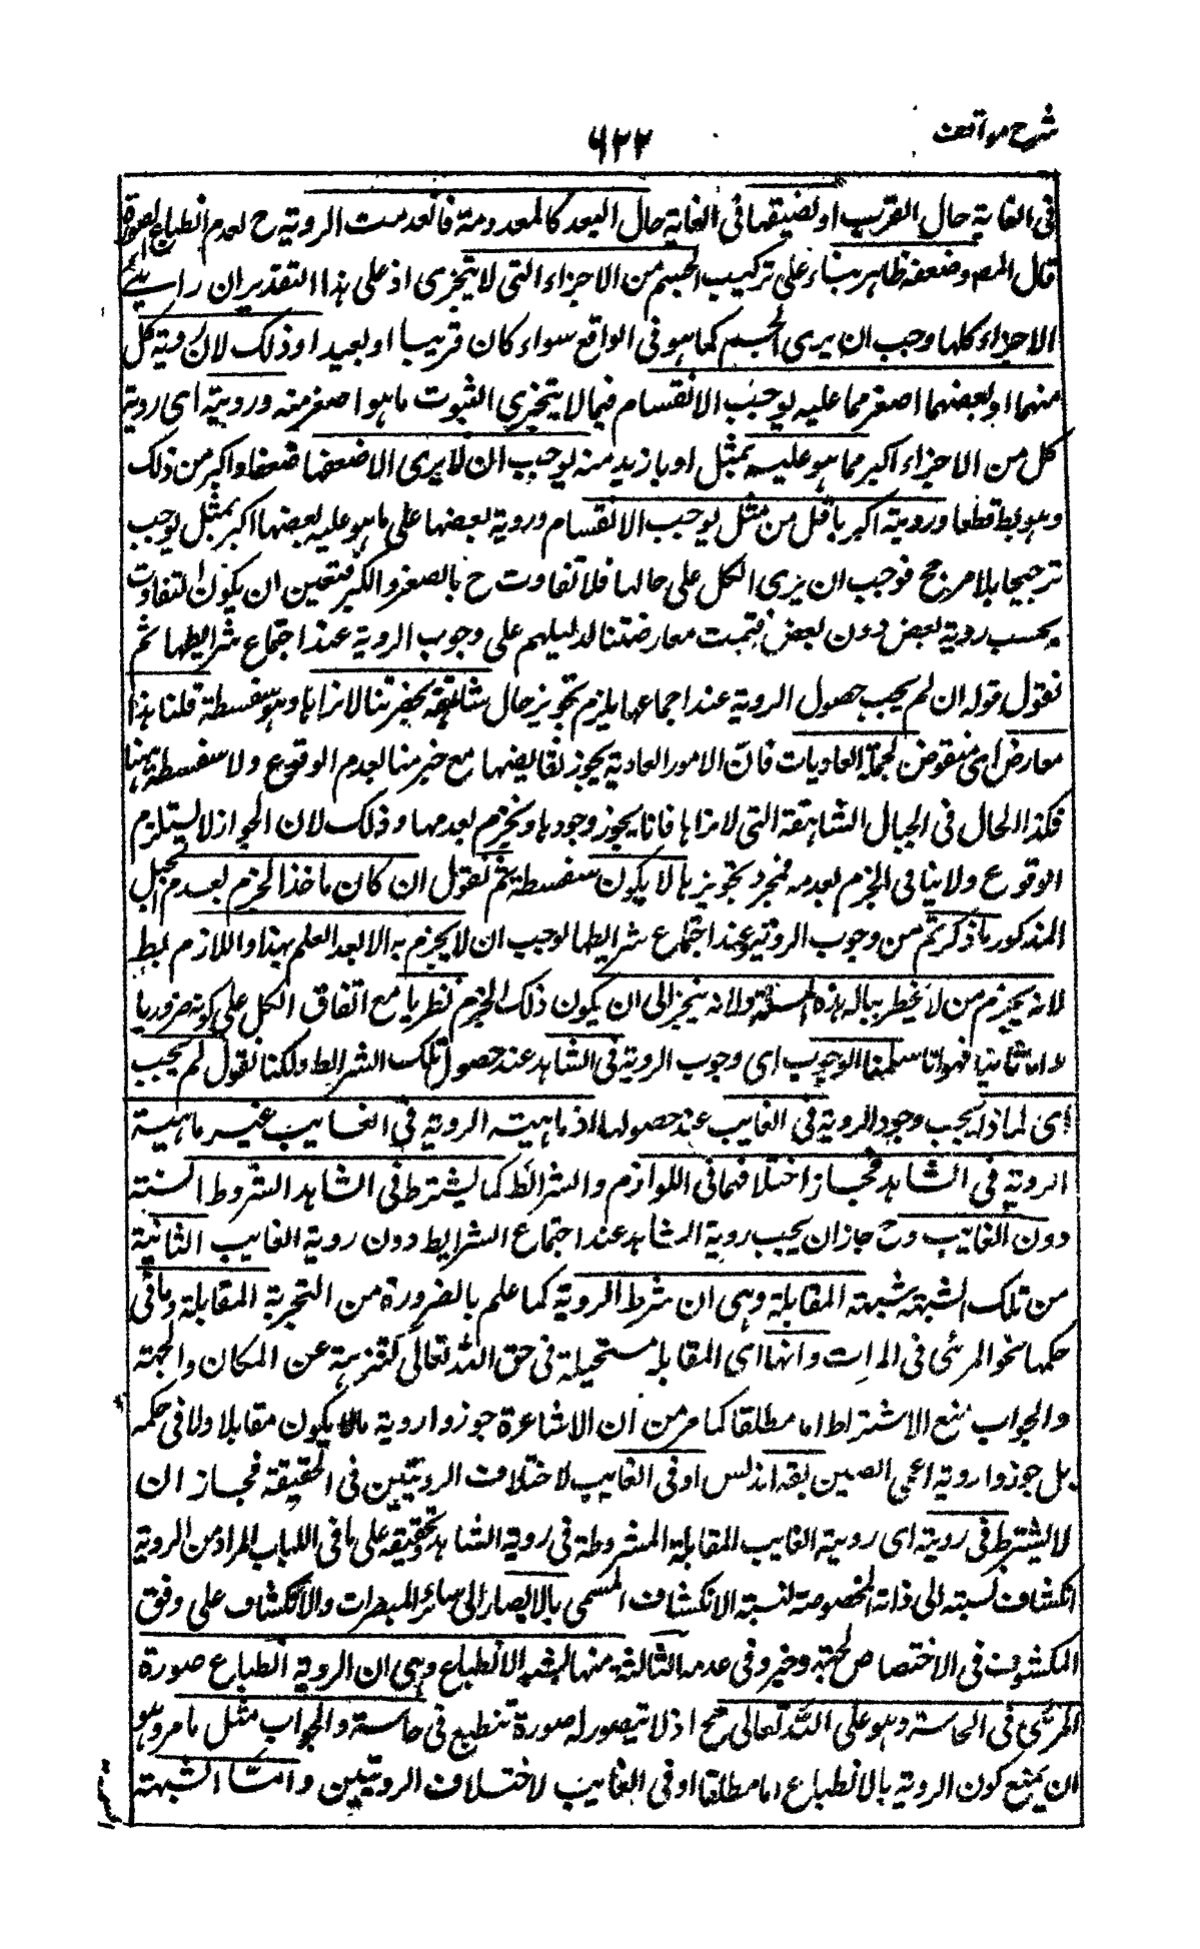 شرح مواقف
٦٢٢
فى الغاية حال القريب او لضيقها فى الغاية حال البعد كالمعدومة فانعدمت الروية ح لعدم انطباع الصورة
قال المص وضعفه ظاهر بناء على تركيب الجسم من الاجزاء التى لا يتجزى اذ على هذا التقدير ان رايت
الاجزاء كلها وجب ان يرى الجسم كما هو فى الواقع سواء كان قريبا او بعيدا وذلك لان روية كل
منهما او بعضهما اصغر مما عليه يوجب الانقسام فيما لا يتجزى لثبوت ما هو اصغر منه ورويته اى روية
كل من الاجزاء اكبر مما هو عليه بمثل او بازيد منه يوجب ان لا يرى الا ضعفها ضعفا واكبر من ذلك
وهو بط قطعا وروية اكبر باقل من مثل يوجب الانقسام وروية بعضها على ما هو عليه وبعضها اكبر بمثل يوجب
ترجيحا بلا مرجح فوجب ان يرى الكل على حالها فلا تفاوت ح بالصغر والكبر فتعين ان يكون التفاوت
بحسب روية بعض دون بعض فتمت معارضتنا لدليلهم على وجوب الروية عند اجتماع شرايطها ثم
نقول قوله ان لم يجب حصول الروية عند اجماعها يلزم تجويز جبال شاهقة بحضرتنا لا نراها وهو سفسطة قلنا هذا
معارض اى منقوض بجملة العاديات فان الامور العادية يجوز نقايضها مع جزمنا بعدم الوقوع ولا سفسطة ههنا
فكذا الحال فى الجبال الشاهقة التى لا نراها فانا يجوز وجودها ونجزم بعدمها وذلك لان الجواز لا يستلزم
الوقوع ولا ينافى الجزم بعدمه فمجرد تجويزها لا يكون سفسطة ثم نقول ان كان ماخذ الجزم بعدم الجبل
المذكور ما ذكرتم من وجوب الروية عند اجتماع شرايطها لوجب ان لا يجزم به الا بعد العلم بهذا واللازم بط
لانه يجزم من لا يخطر بباله هذه المسئلة ولانه ينجر الى ان يكون ذلك الجزم نظريا مع اتفاق الكل على كونه ضروريا
واما ثانيا فهو انا سلمنا الوجوب اى وجوب الروية فى الشاهد عند حصول تلك الشرايط ولكنا نقول لم يجب
اى لماذا يجب وجود الروية فى الغايب عند حصولها اذ ماهية الروية فى الغايب غير ماهية
الروية فى الشاهد فجاز اختلافهما فى اللوازم والشرائط كما يشترط فى الشاهد الشروط الستة
دون الغايب وح جاز ان يجب روية الشاهد عند اجتماع الشرايط دون روية الغايب الثانية
من تلك الشبهة شبهة المقابلة وهى ان شرط الروية كما علم بالضرورة من التجربة المقابلة وما فى
حكمها نحو المرئى فى المرات وانها اى المقابلة مستحيلة فى حق الله تعالى لتنزهه عن المكان والجهة
والجواب منع الاشتراط اما مطلقا كما مر من ان الاشاعرة جوزوا روية مالا يكون مقابلا ولا فى حكمه
بل جوزوا روية اعمى الصين بقة اندلس او فى الغايب لاختلاف الرويتين فى الحقيقة فجاز ان
لا يشترط فى رويته اى روية الغايب المقابلة المشروطة فى روية الشاهد تحقيقه على ما فى اللباب المراد من الروية
انكشاف نسبته الى ذاته المخصوصة كنسبة الانكشاف المسمى بالابصار الى سائر المبصرات والانكشاف على وفق
المكشوف فى الاختصاص بجهة وحيز وفى عدمه الثالثة منها شبهة الانطباع وهى ان الروية انطباع صورة
المرئى فى الحاسة وهو على الله تعالى مح اذ لا يتصور له صورة تنطبع فى حاسة والجواب مثل ما مر وهو
ان يمنع كون الروية بالانطباع اما مطلقا او فى الغايب لاختلاف الرويتين واما الشبهة